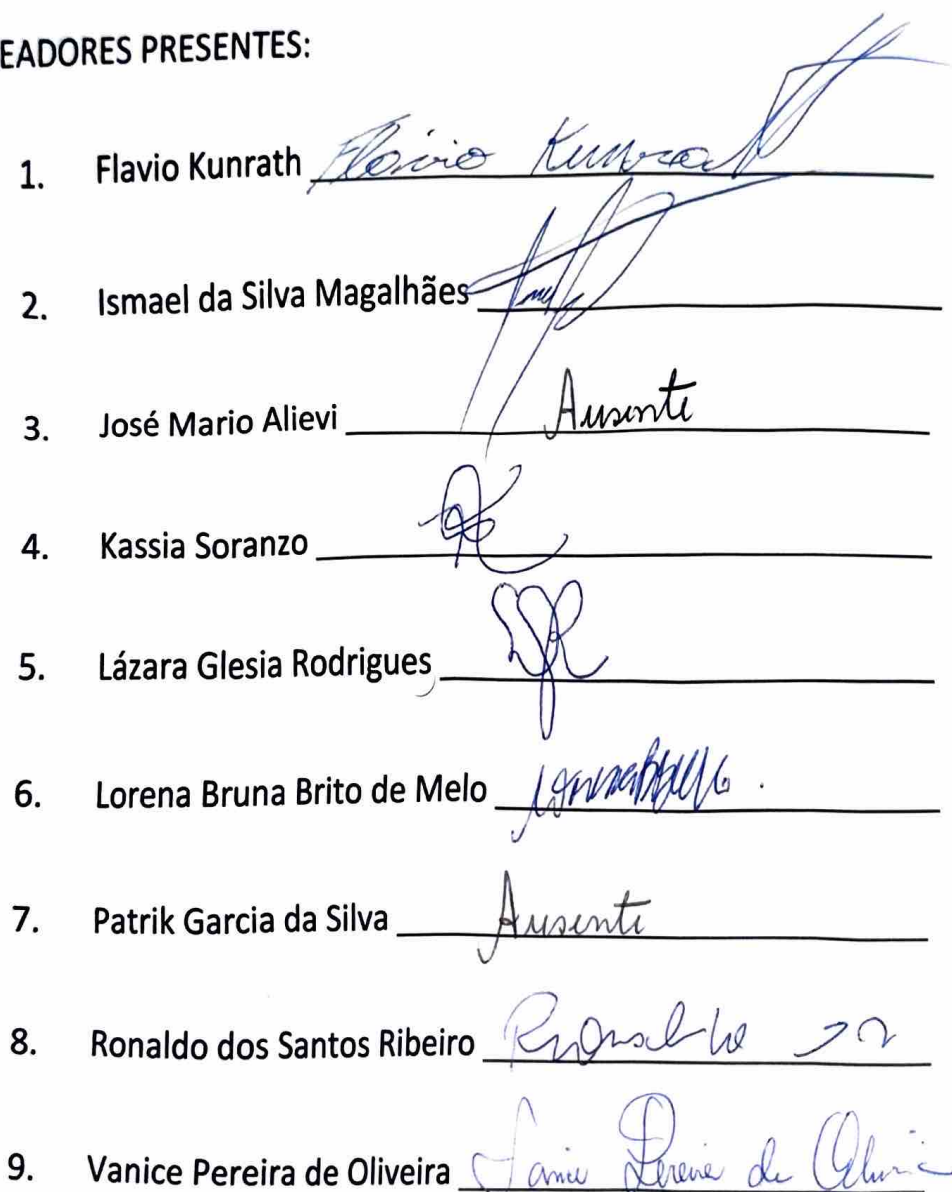 EADORES PRESENTES:
1. Flavio Kunrath Flavio Kunrath
2. Ismael da Silva Magalhães
3. José Mario Alievi Ausente
4. Kassia Soranzo
5. Lázara Glesia Rodrigues
6. Lorena Bruna Brito de Melo
7. Patrik Garcia da Silva Ausente
8. Ronaldo dos Santos Ribeiro
9. Vanice Pereira de Oliveira Vanice Pereira de Oliveira